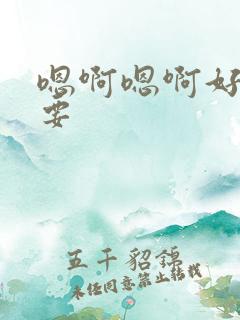 嗯啊嗯啊好
要
五千貂锦
未经同意禁止转载